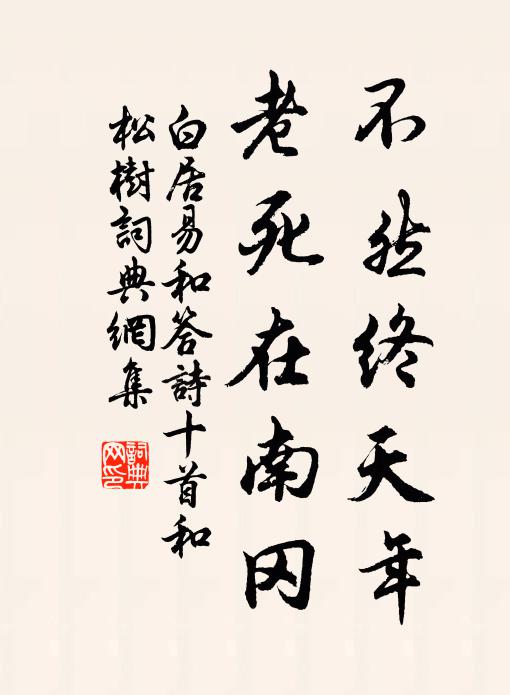 不然终天年
老死在南冈
白居易和答詩十首和
松樹詞典網集
詞典
网印